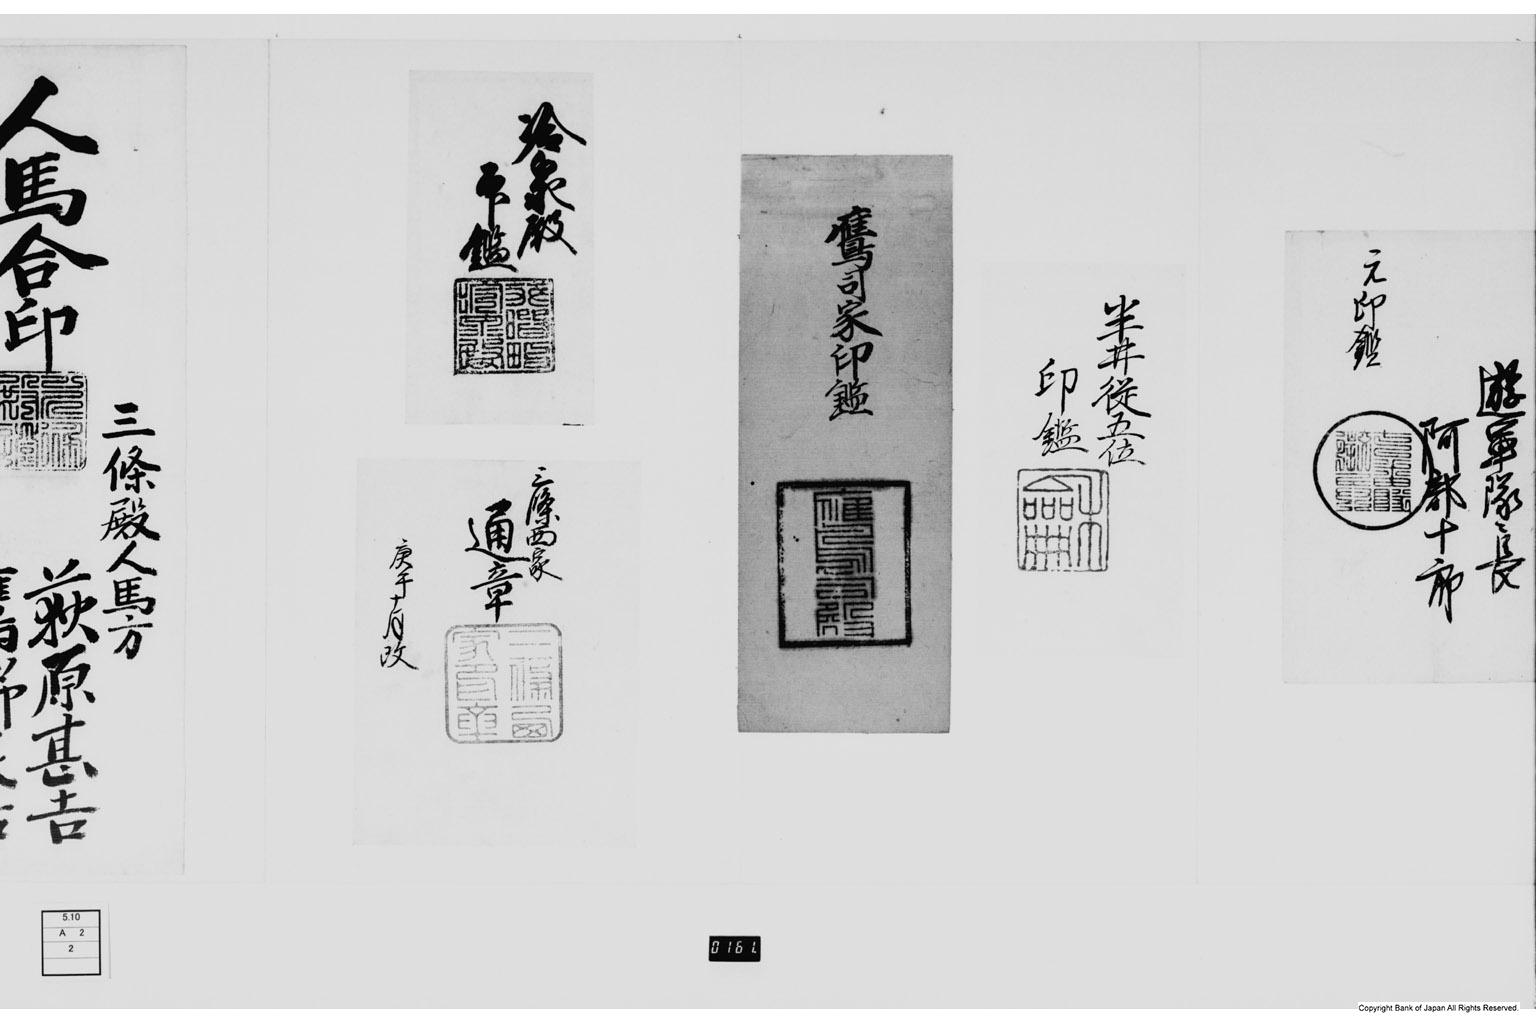 元印鑑
遊軍隊長
阿部十郎
半井従五位
印鑑
鷹司家印鑑
冷泉殿
印鑑
三條西家
通章
三條西
家通章
庚午十月改
人馬合印
三條殿人馬方
萩原甚吉
5.10
A 2
2
0161
Copyright Bank of Japan All Rights Reserved.